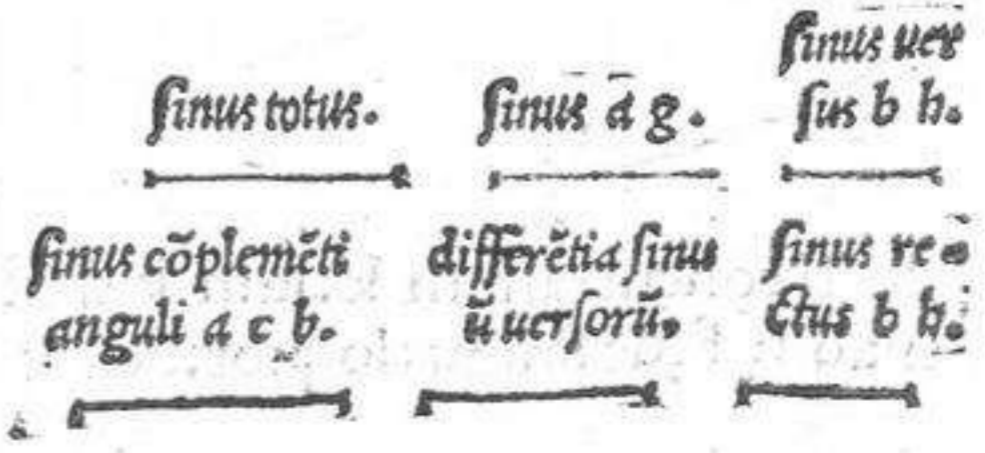 ſinus totus.
ſinus a g.
ſinus uer
ſus b h.
ſinus cõplemẽti
anguli a c b.
differẽtia ſinu
ũ uerſorũ.
ſinus re=
ctus b h.